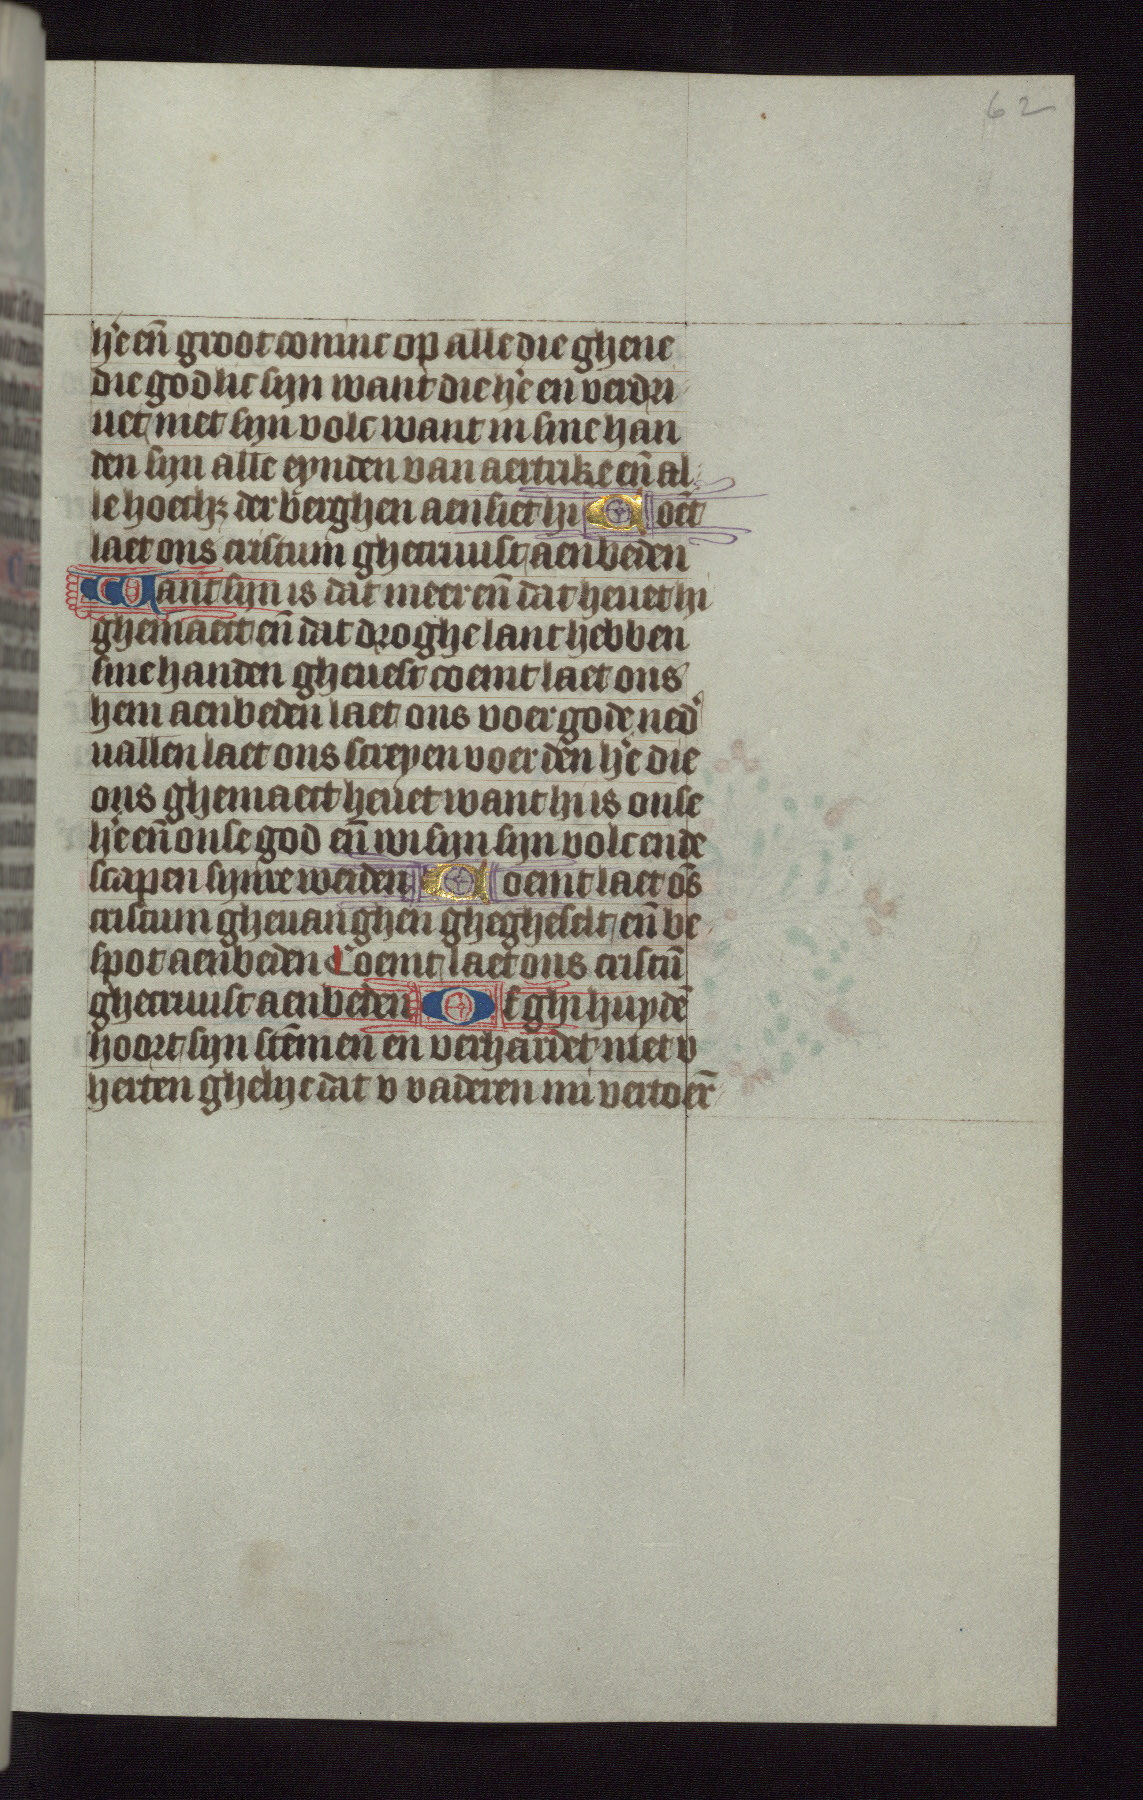 62
h̄e en̄ groot coninc op alle die ghene
die godlic sijn want die h̄e en verdri
uet niet sijn volc want in sine han
den sijn alle eynden van aertrike en̄ al
le hoechꝫ der berghen aensiet hi Coēt
laet ons cristum ghecruust aenbeden
Want sijn is dat meer en̄ dat heuet hi
ghemaect en̄ dat droghe lant hebben
sine handen gheuest coemt laet ons
hem aenbeden laet ons voer gode ned᷑
uallen laet ons screyen voer den h̄e die
ons ghemaect heuet want hi is onse
h̄e en̄ onse god en̄ wi sijn sijn volc ende
scapen sijnre weiden Coemt laet ōs
cristum gheuanghen ghegheselt en̄ be
spot aenbeden Coemt laet ons cristū
ghecruust aenbeden Of ghi huydē
hoort sijn stēmen en verhardet niet v
herten ghelijc dat v vaderen mi vertoer̄